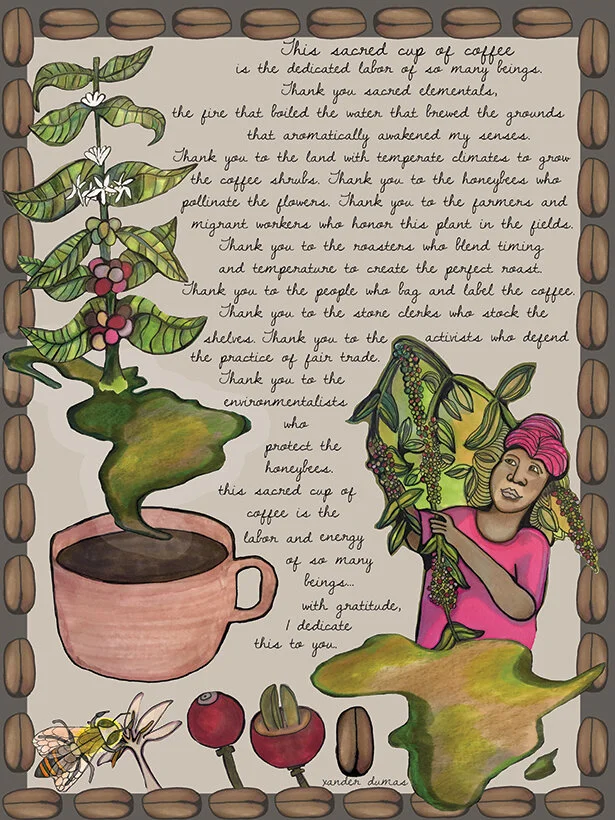 This sacred cup of coffee
is the dedicated labor of so many beings.
Thank you sacred elementals,
the fire that boiled the water that brewed the grounds
that aromatically awakened my senses.
Thank you to the land with temperate climates to grow
the coffee shrubs. Thank you to the honeybees who
pollinate the flowers. Thank you to the farmers and
migrant workers who honor this plant in the fields.
Thank you to the roasters who blend timing
and temperature to create the perfect roast.
Thank you to the people who bag and label the coffee.
Thank you to the store clerks who stock the
shelves. Thank you to the activists who defend
the practice of fair trade.
Thank you to the
environmentalists
who
protect the
honeybees.
this sacred cup of
coffee is the
labor and energy
of so many
beings...
with gratitude,
I dedicate
this to you.
xander dumas